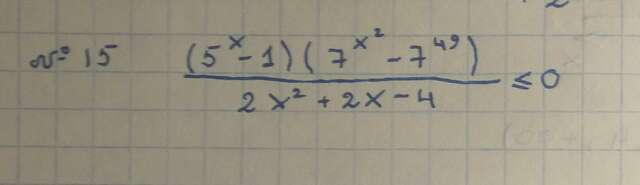 № 15 (5^x - 1)(7^{x^2} - 7^{49}) / (2x^2 + 2x - 4) ≤ 0